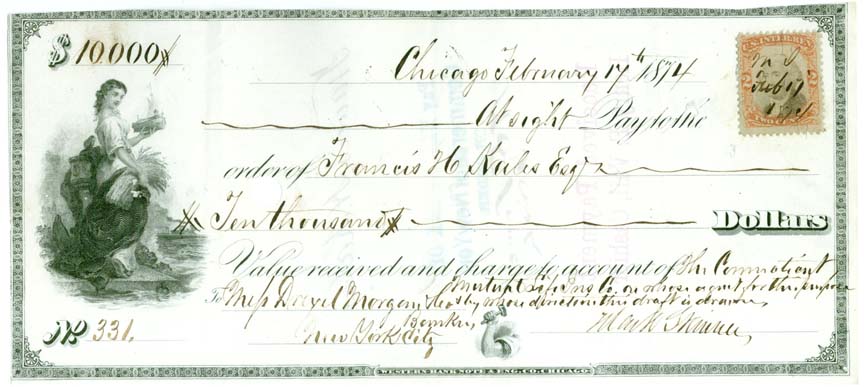 $ 10.000
Chicago February 17th 1874
At sight Pay to the
order of Francis H Kales Esqr
Ten thousand Dollars
Value received and charge to account of The Connecticut
Mutual Life Ins Co. as whose agent for this purpose
To Mess Drexel Morgan & Co & by whose direction this draft is drawn,
Bankers,
New York City
Mark Skinner
No 331.
U.S. INTER. REV.
M S
Feb 17
WESTERN BANK NOTE & ENG. CO. CHICAGO